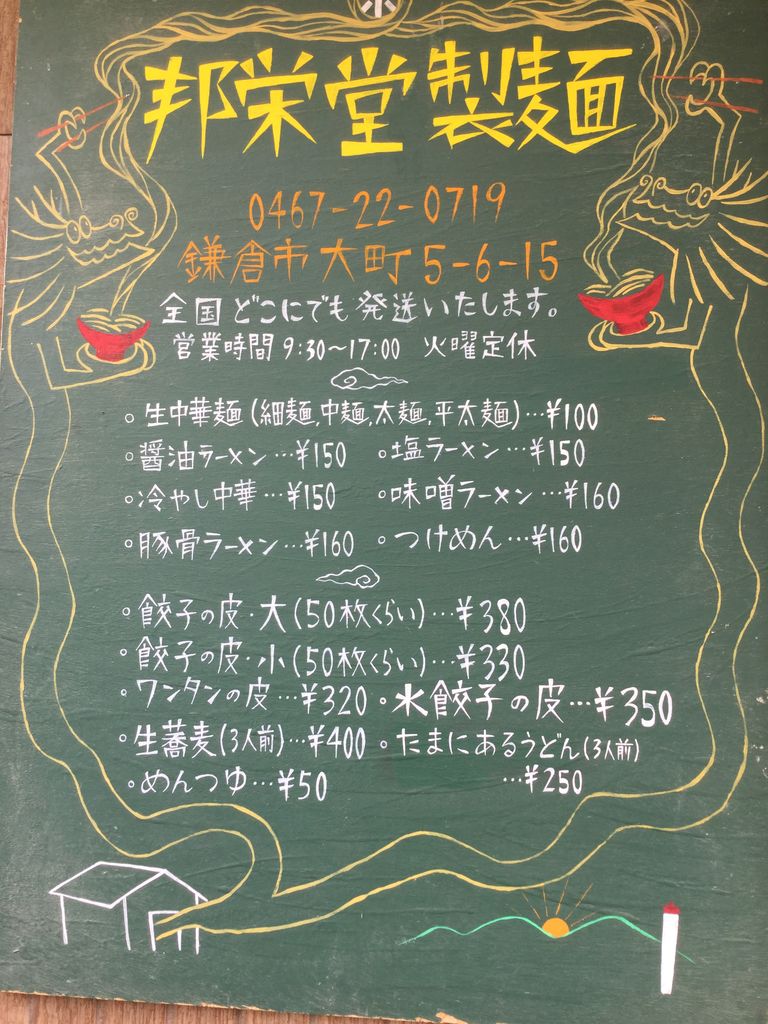 邦栄堂製麺
0467-22-0719
鎌倉市大町5-6-15
全国どこにでも発送いたします。
営業時間9:30~17:00 火曜定休
。生中華麺(細麺,中麺,太麺,平太麺)…¥100
。醤油ラーメン…¥150 。塩ラーメン…¥150
。冷やし中華…¥150 。味噌ラーメン…¥160
。豚骨ラーメン…¥160 。つけめん…¥160
。餃子の皮・大(50枚くらい)…¥380
。餃子の皮・小(50枚くらい)…¥330
。ワンタンの皮…¥320 。水餃子の皮…¥350
。生蕎麦(3人前)…¥400 。たまにあるうどん(3人前)
。めんつゆ…¥50 …¥250